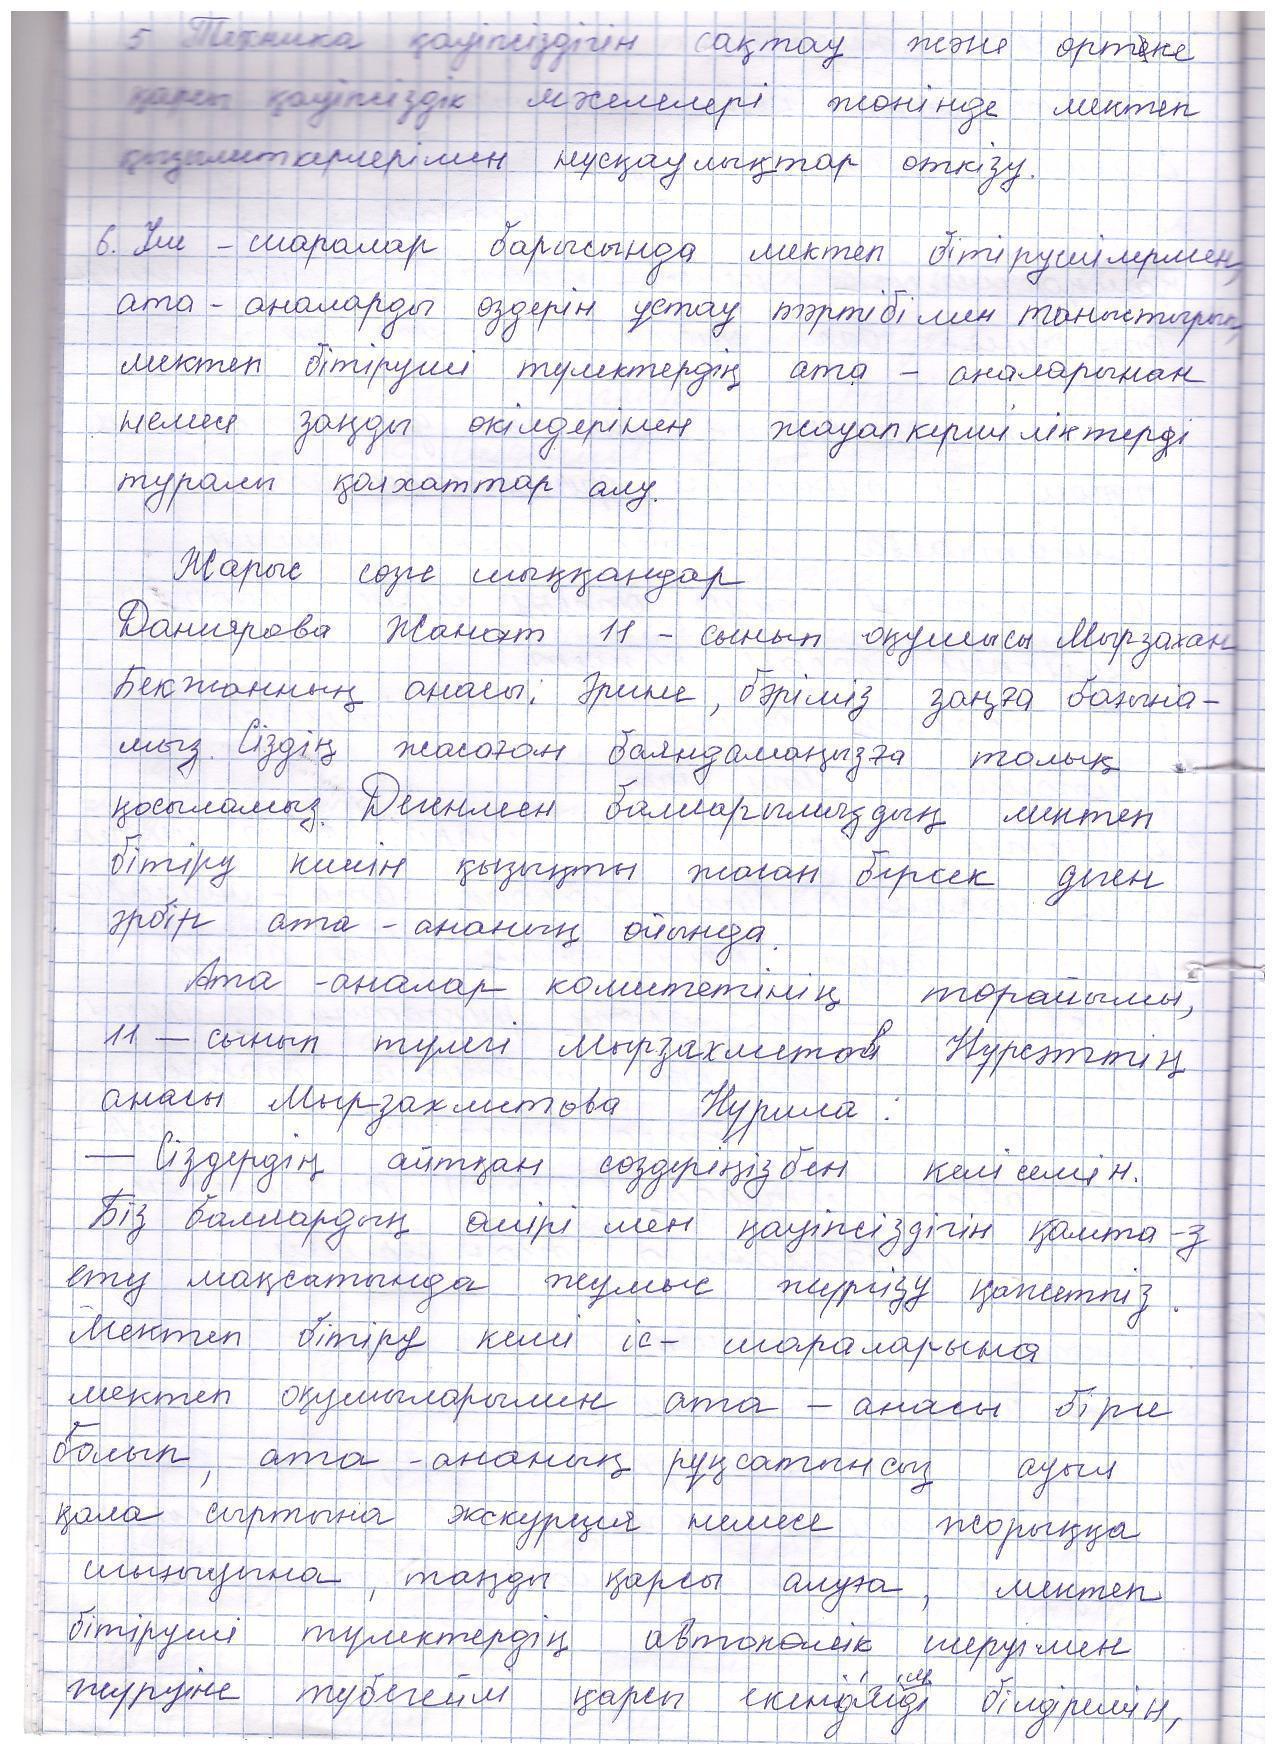 5 Техника қауіпсіздігін сақтау және өртке
қарсы қауіпсіздік мәселелері жөнінде мектеп
қызметкерлерімен нұсқаулықтар өткізу.
6. Іш - шаралар барысында мектеп бітірушілермен,
ата - аналарды өздерін ұстау тәртібімен таныстырып,
мектеп бітіруші түлектердің ата - аналарынан
немесе заңды өкілдерімен жауапкершіліктерді
туралы қолхаттар алу.
Жарыс сөзге шыққандар
Даниярова Жанат 11 - сынып оқушысы Мырзахан
Бекжанның анасы: Әрине, бәріміз заңға бағына-
мыз. Сіздің жасаған баяндамаңызға толық
қосыламыз. Дегенмен балаларымыздың мектеп
бітіру кешін қызықты жаған берсек деген
әрбір ата - ананың ойында.
Ата - аналар комитетінің төрайымы,
11 - сынып түлегі Мырзахметов Нұрсәттің
анасы Мырзахметова Нұрила:
— Сіздердің айтқан сөздеріңізбен келісемін.
Біз балалардың өмірі мен қауіпсіздігін қамта-з
ету мақсатында жұмыс жүргізу қажетпіз.
Мектеп бітіру кеші іс - шараларына
мектеп оқушыларымен ата - анасы бірге
болып, ата - ананың рұқсатынсыз ауыл
қала сыртына экскурция немесе жорыққа
шығыуына, таңды қарсы алуға, мектеп
бітіруші түлектердің автокөлік шеруімен
жүруіне түбегейлі қарсы екенімді білдіремін,